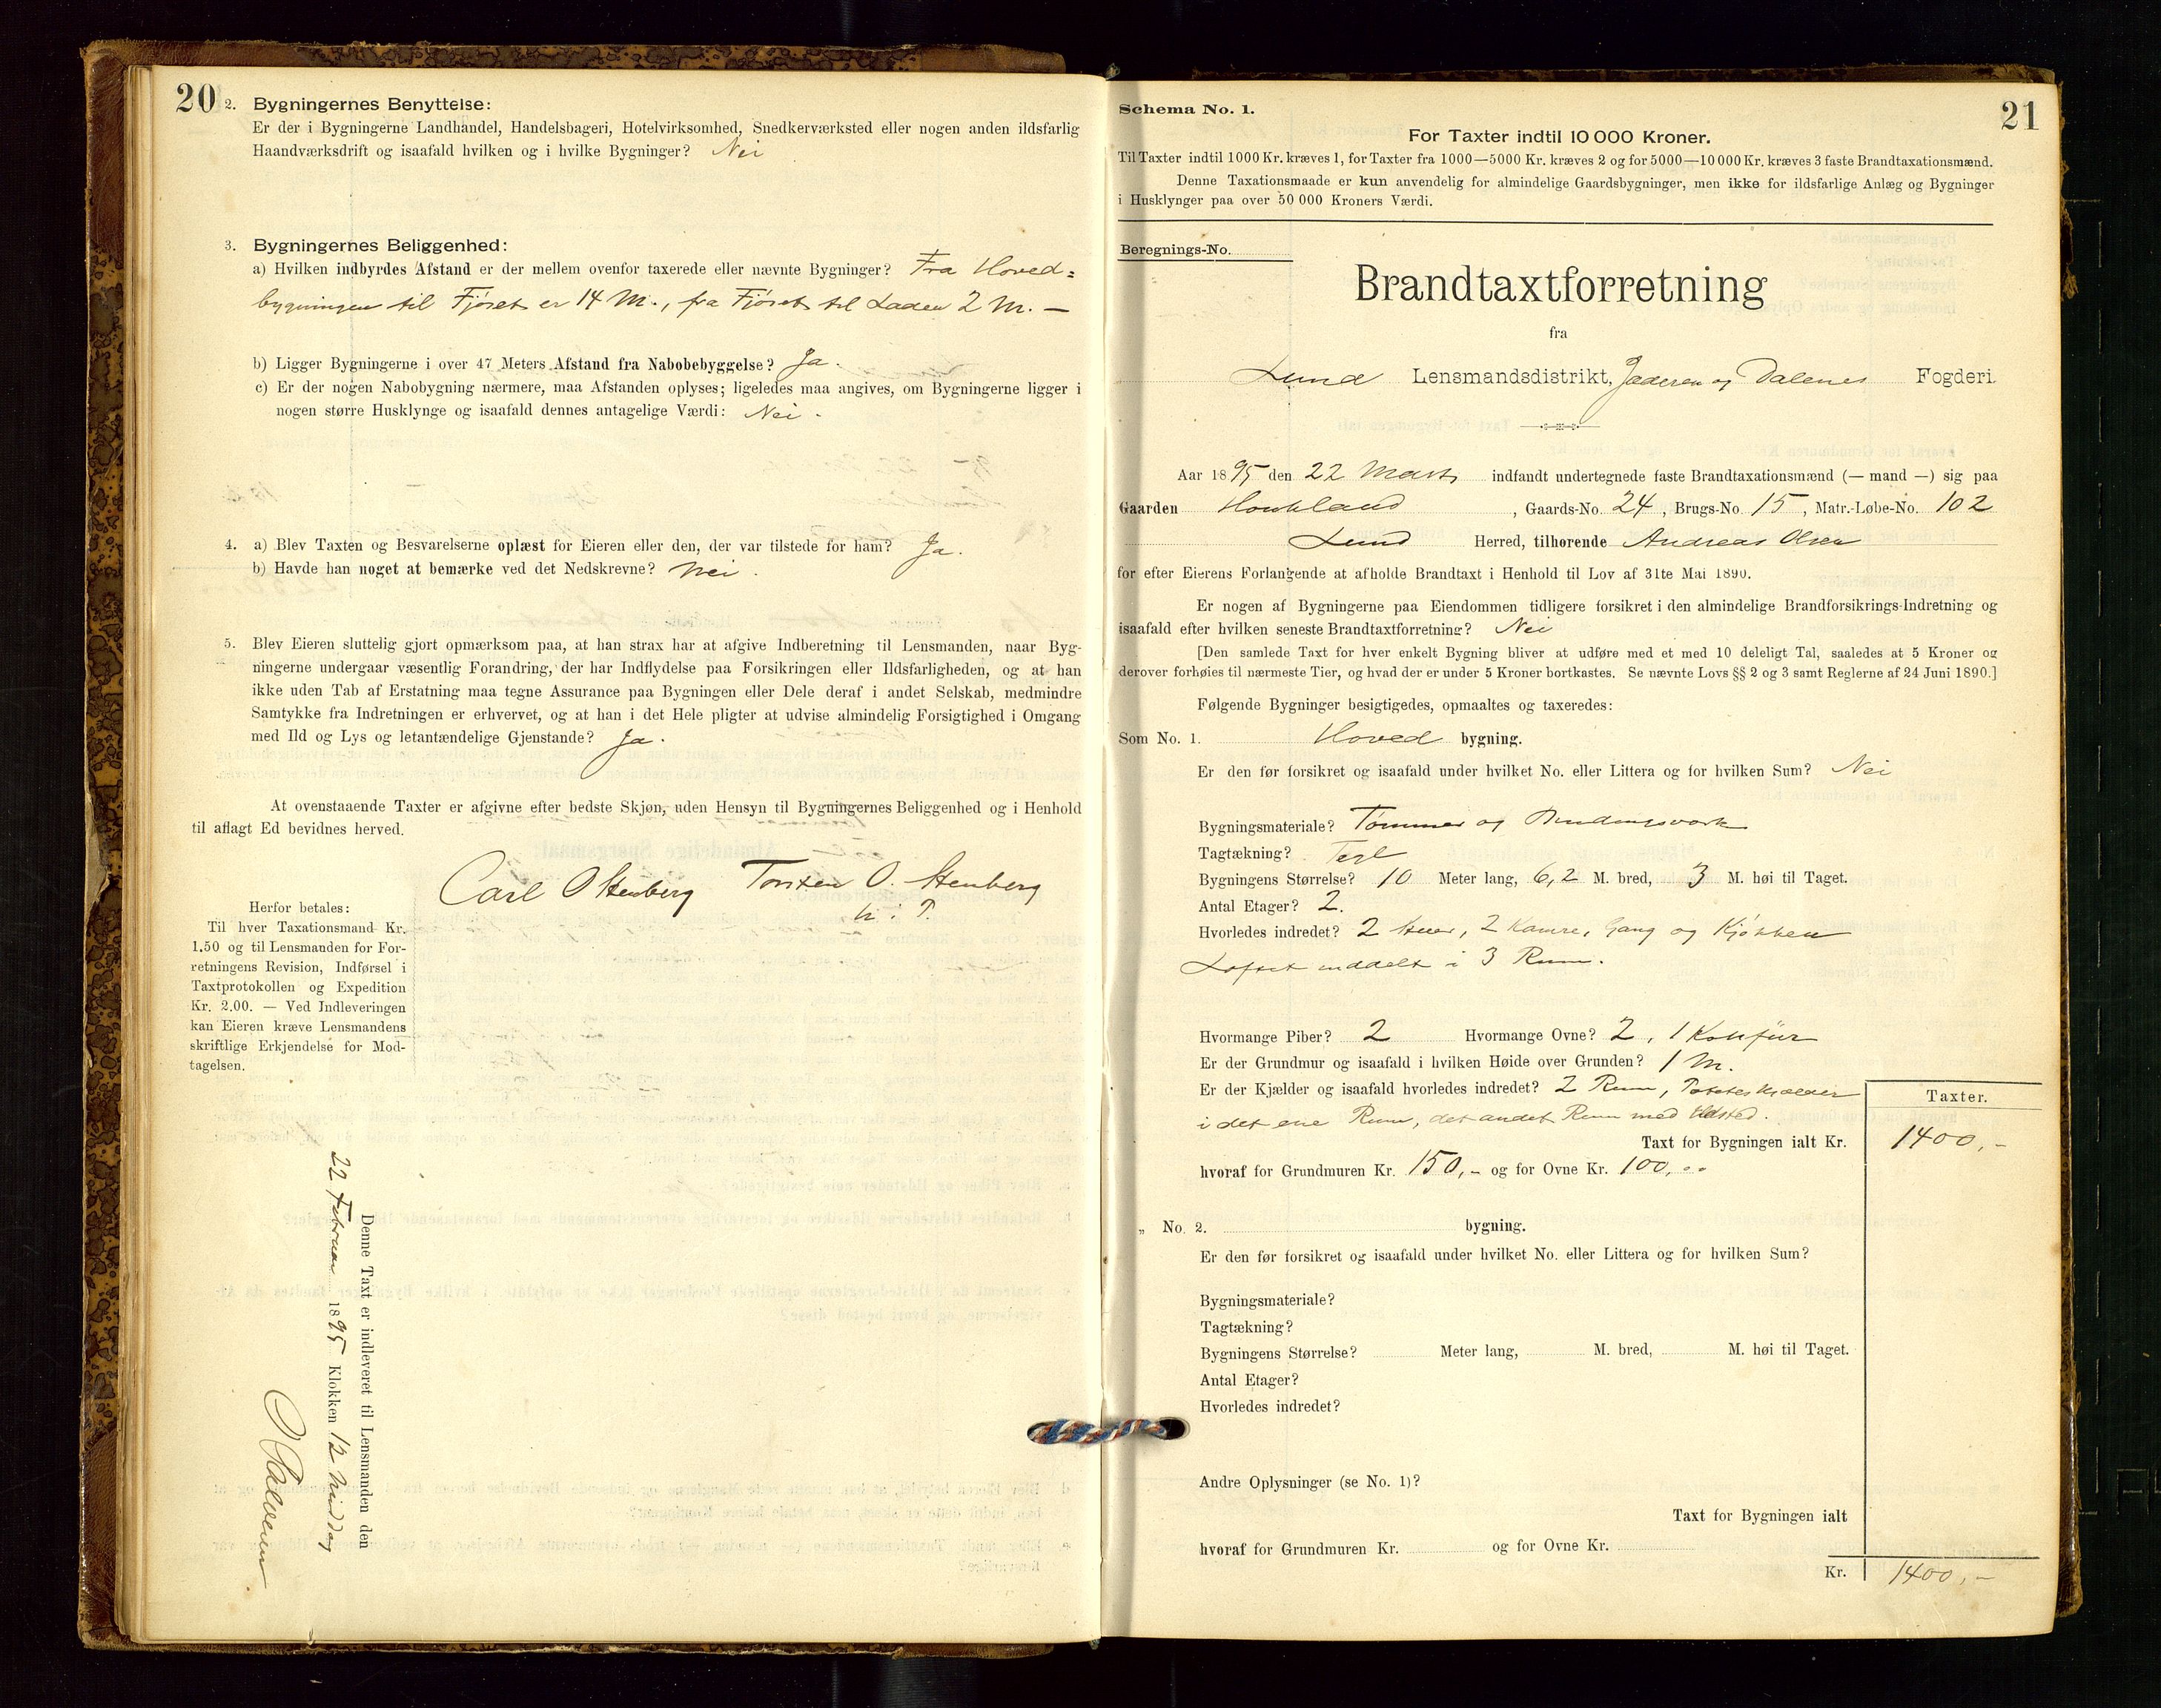 20
2. Bygningernes Benyttelse:
Er der i Bygningerne Landhandel, Handelsbageri, Hotelvirksomhed, Snedkerværksted eller nogen anden ildsfarlig
Haandværksdrift og isaafald hvilken og i hvilke Bygninger? Nei
3. Bygningernes Beliggenhed:
a) Hvilken indbyrdes Afstand er der mellem ovenfor taxerede eller nævnte Bygninger? Fra Hoved=
bygningen til Fjöset er 14 M., fra Fjöset til Laden 2 M. —
b) Ligger Bygningerne i over 47 Meters Afstand fra Nabobebyggelse? Ja.
c) Er der nogen Nabobygning nærmere, maa Afstanden oplyses; ligeledes maa angives, om Bygningerne ligger i
nogen større Husklynge og isaafald dennes antagelige Værdi: Nei.
4. a) Blev Taxten og Besvarelserne oplæst for Eieren eller den, der var tilstede for ham? Ja.
b) Havde han noget at bemærke ved det Nedskrevne? Nei.
5. Blev Eieren sluttelig gjort opmærksom paa, at han strax har at afgive Indberetning til Lensmanden, naar Byg-
ningerne undergaar væsentlig Forandring, der har Indflydelse paa Forsikringen eller Ildsfarligheden, og at han
ikke uden Tab af Erstatning maa tegne Assurance paa Bygningen eller Dele deraf i andet Selskab, medmindre
Samtykke fra Indretningen er erhvervet, og at han i det Hele pligter at udvise almindelig Forsigtighed i Omgang
med Ild og Lys og letantændelige Gjenstande? Ja.
At ovenstaaende Taxter er afgivne efter bedste Skjøn, uden Hensyn til Bygningernes Beliggenhed og i Henhold
til aflagt Ed bevidnes herved.
Carl O Stenberg Torsten O. Stenberg
Herfor betales:
Til hver Taxationsmand Kr.
1.50 og til Lensmanden for For-
retningens Revision, Indførsel i
Taxtprotokollen og Expedition
Kr. 2.00. — Ved Indleveringen
kan Eieren kræve Lensmandens
skriftlige Erkjendelse for Mod-
tagelsen.
Denne Taxt er indleveret til Lensmanden den
22 Februar 1895 Klokken 12 Middag
21
Schema No. 1.
For Taxter indtil 10 000 Kroner.
Til Taxter indtil 1000 Kr. kræves 1, for Taxter fra 1000—5000 Kr. kræves 2 og for 5000—10 000 Kr. kræves 3 faste Brandtaxationsmænd.
Denne Taxationsmaade er kun anvendelig for almindelige Gaardsbygninger, men ikke for ildsfarlige Anlæg og Bygninger
i Husklynger paa over 50 000 Kroners Værdi.
Beregnings-No.
Brandtaxtforretning
fra
Lund Lensmandsdistrikt, Jæderen og Dalenes Fogderi.
Aar 1895 den 22 Marts indfandt undertegnede faste Brandtaxationsmænd (— mand —) sig paa
Gaarden Houkland, Gaards-No. 24, Brugs-No. 15, Matr.-Løbe-No. 102
Lund Herred, tilhørende Andreas Olsen
for efter Eierens Forlangende at afholde Brandtaxt i Henhold til Lov af 31te Mai 1890.
Er nogen af Bygningerne paa Eiendommen tidligere forsikret i den almindelige Brandforsikrings-Indretning og
isaafald efter hvilken seneste Brandtaxtforretning? Nei
[Den samlede Taxt for hver enkelt Bygning bliver at udføre med et med 10 deleligt Tal, saaledes at 5 Kroner og
derover forhøies til nærmeste Tier, og hvad der er under 5 Kroner bortkastes. Se nævnte Lovs §§ 2 og 3 samt Reglerne af 24 Juni 1890.]
Følgende Bygninger besigtigedes, opmaaltes og taxeredes:
Som No. 1. Hoved bygning.
Er den før forsikret og isaafald under hvilket No. eller Littera og for hvilken Sum? Nei
Bygningsmateriale? Tömmer og Bindingsverk
Tagtækning? Tegl
Bygningens Størrelse? 10 Meter lang, 6,2 M. bred, 3 M. høi til Taget.
Antal Etager? 2.
Hvorledes indredet? 2 Stuer, 2 Kamre, Gang og Kjökken
Loftet inddelt i 3 Rum.
Hvormange Piber? 2 Hvormange Ovne? 2, 1 Komfür
Er der Grundmur og isaafald i hvilken Høide over Grunden? 1 M.
Er der Kjælder og isaafald hvorledes indredet? 2 Rum, Potteskjælder
i det ene Rum, det andet Rum med Ildsted.
Taxter.
Taxt for Bygningen ialt Kr. 1400,-
hvoraf for Grundmuren Kr. 150,- og for Ovne Kr. 100,00
„ No. 2. bygning.
Er den før forsikret og isaafald under hvilket No. eller Littera og for hvilken Sum?
Bygningsmateriale?
Tagtækning?
Bygningens Størrelse? Meter lang, M. bred, M. høi til Taget.
Antal Etager?
Hvorledes indredet?
Andre Oplysninger (se No. 1)?
Taxt for Bygningen ialt
hvoraf for Grundmuren Kr. og for Ovne Kr.
Kr. 1400,-